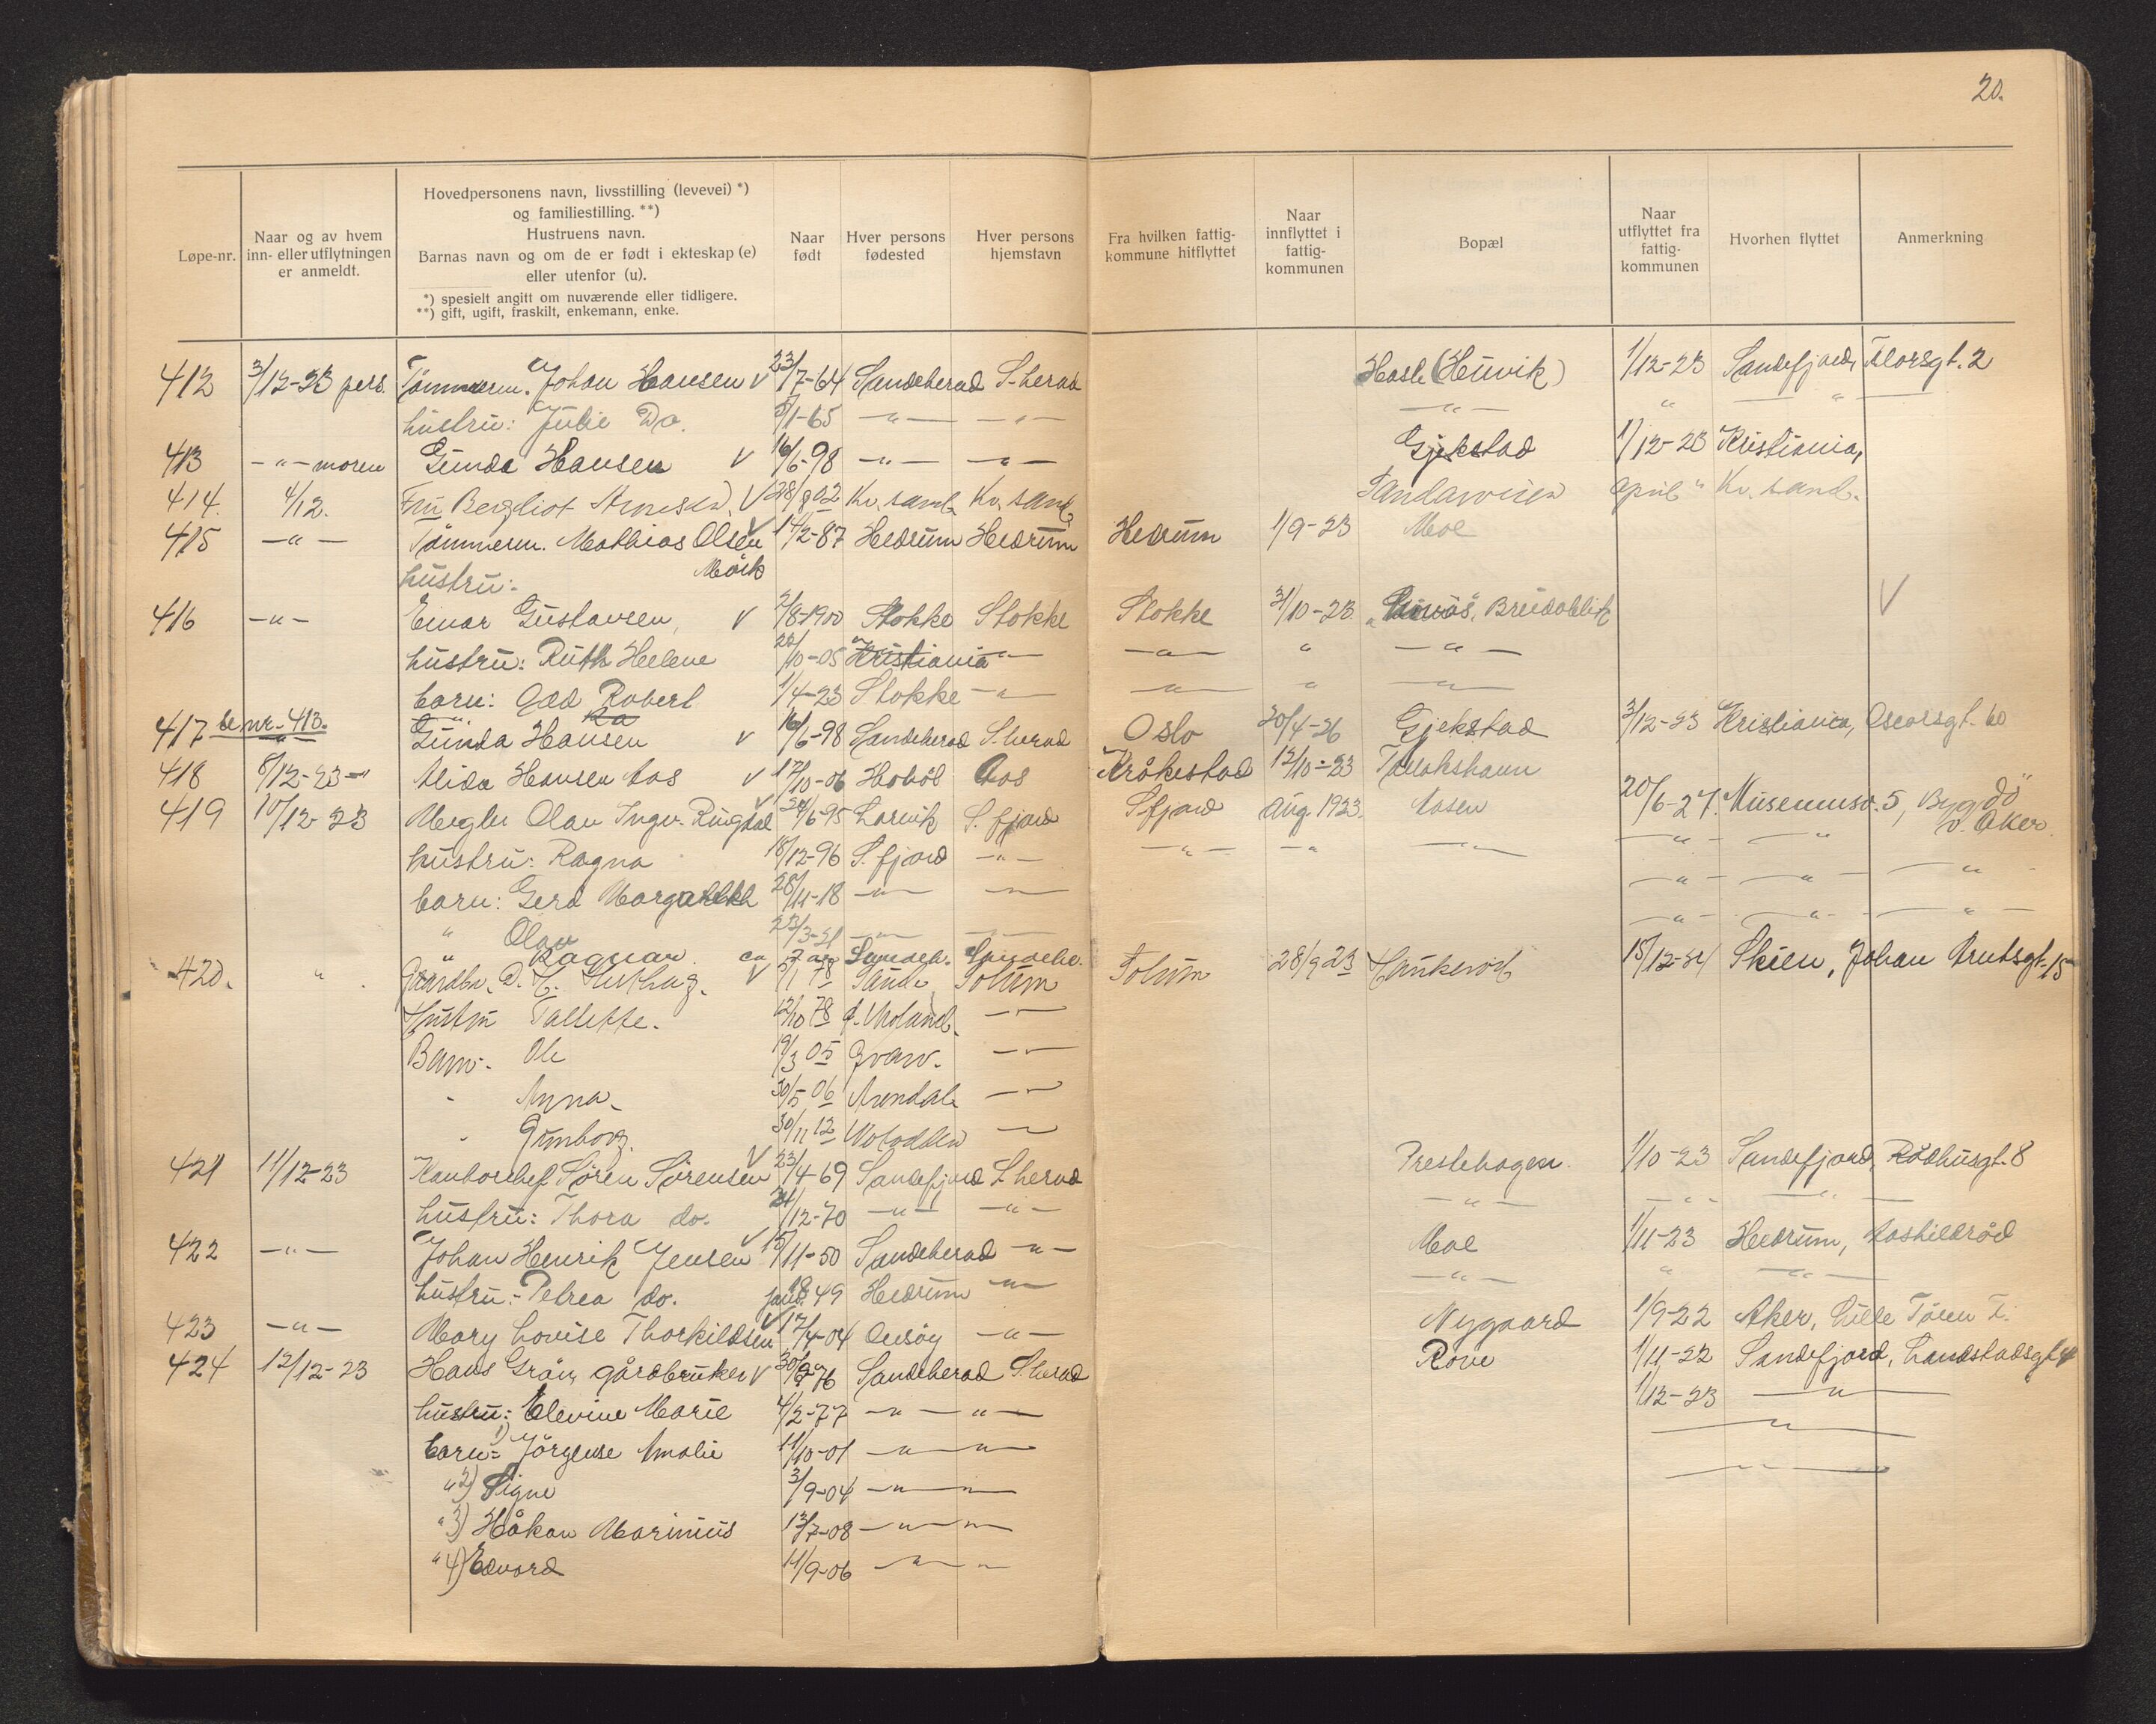 20.
Løpe-nr.
Naar og av hvem inn- eller utflytningen er anmeldt.
Hovedpersonens navn, livsstilling (levevei) *)
og familiestilling. **)
Hustruens navn.
Barnas navn og om de er født i ekteskap (e)
eller utenfor (u).
*) spesielt angitt om nuværende eller tidligere.
**) gift, ugift, fraskilt, enkemann, enke.
Naar født
Hver persons fødested
Hver persons hjemstavn
Fra hvilken fattigkommune hitflyttet
Naar innflyttet i fattigkommunen
Bopæl
Naar utflyttet fra fattigkommunen
Hvorhen flyttet
Anmerkning
412 3/12-23 pers. Tømmerm. Johan Hansen V 23/7-64 Sandeherad S-herad Hasle (Huvik) 1/12-23 Sandefjord, Thorsgt. 2
hustru: Julie Do. 5/1-65 -"- -"- -"- " -"-
413 -"- moren Gunda Hansen V 16/6-98 -"- -"- Gjekstad 1/12-23 Kristiania,
414. 4/12. Fru Bergliot Arnesen V 28/8 02 Kr. sand. Kr. sand. Sandarveien april " Kr. sand.
415 -"- Tømmerm. Mathias Olsen V 14/2-87 Hedrum Hedrum Hedrum 1/9-23 Moe
hustru: Mörk
416 -"- Einar Gustavsen, V 2/8-1900 Stokke Stokke Stokke 31/10-23 Breidablik V
hustru: Ruth Helene 22/10-05 Kristiania -"- -"- " -"-
barn: Odd Robert 1/4-23 Stokke -"- -"- " -"-
417 se nr. 413. Gunda Hansen V 16/6-98 Sandeherad S.herad Oslo 30/4-26 Gjekstad 3/12-23 Kristiania, Oscarsgt. 60
418 8/12-23 -"- Alida Hansen Aas V 17/10-06 Hobøl Aas Kråkestad 12/10-23 Tallakshavn
419 10/12-23 Megler Olav Ingv. Ringdal V 24/6-95 Larvik S. fjord Sfjord Aug. 1923. Aasen 20/6-27. Museumsv. 5, Bygdö v. Aker.
hustru: Ragna 18/12-96 S. fjord -"- -"- -"- -"- -"- "
barn: Gerd Margarethe 28/11-18 -"- -"- -"- -"- "
" Olav 23/3-21 -"- -"- -"- -"- "
" Ragnar. ca 2 aar Sandeh. Sandehe.
420. " Gaardbr. D. C. V 5/1 78 Sande Solum Solum 28/9 23 Haukerød 15/12-24 Skien, Johan Arntsgt. 15
Hustru Tallette. 12/10 78 Ø. Moland -"-
Barn. Ole 19/3 05 Gvarv. -"-
- Anna. 30/5 06 Arendal -"-
- Gunborg. 30/11 12 Notodden -"-
421 11/12-23 Kontorchef Søren Sørensen V 23/4-69 Sandefjord S.herad Prestehagen. 1/10-23 Sandefjord, Rådhusgt. 8
hustru: Thora do. 24/12-70 -"- -"- -"- -"- -"-
422 -"- Johan Henrik Jensen V 15/11-50 Sandeherad -"- Moe 1/11-23 Hedrum, Aashildrød
hustru: Petrea do. 1849 Hedrum -"- -"- " -"-
423 -"- Mary Lovise Thorkildsen V 17/4-04 Onsøy -"- Nygaard 1/9-22 Aker, Lille Tøien
424 12/12-23 Hans Grån, gårdbruker V 30/9-76 Sandeherad S.herad Rove 1/11-22 Sandefjord, Landstadsgt. 4
hustru: Elevine Marie 4/2-77 -"- "- 1/12-23 -"-
barn: 1) Jörgense Amalie 11/10-01 -"- "- -"-
" 2) Signe 3/9-04 -"- "- -"-
" 3) Håkon Marinius 13/7-08 -"- "-
" 4) Edvard 11/9-06 -"- "-